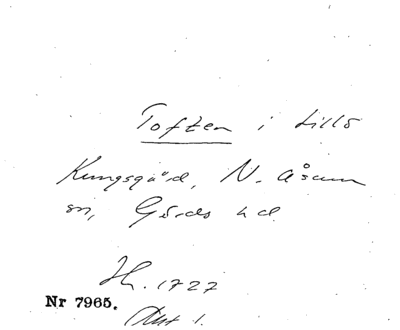 Toften i Lillö
Kungsgård, N. Åsum
sn, Gärds hd
H. 1727
Nr 7965.
Akt 1.